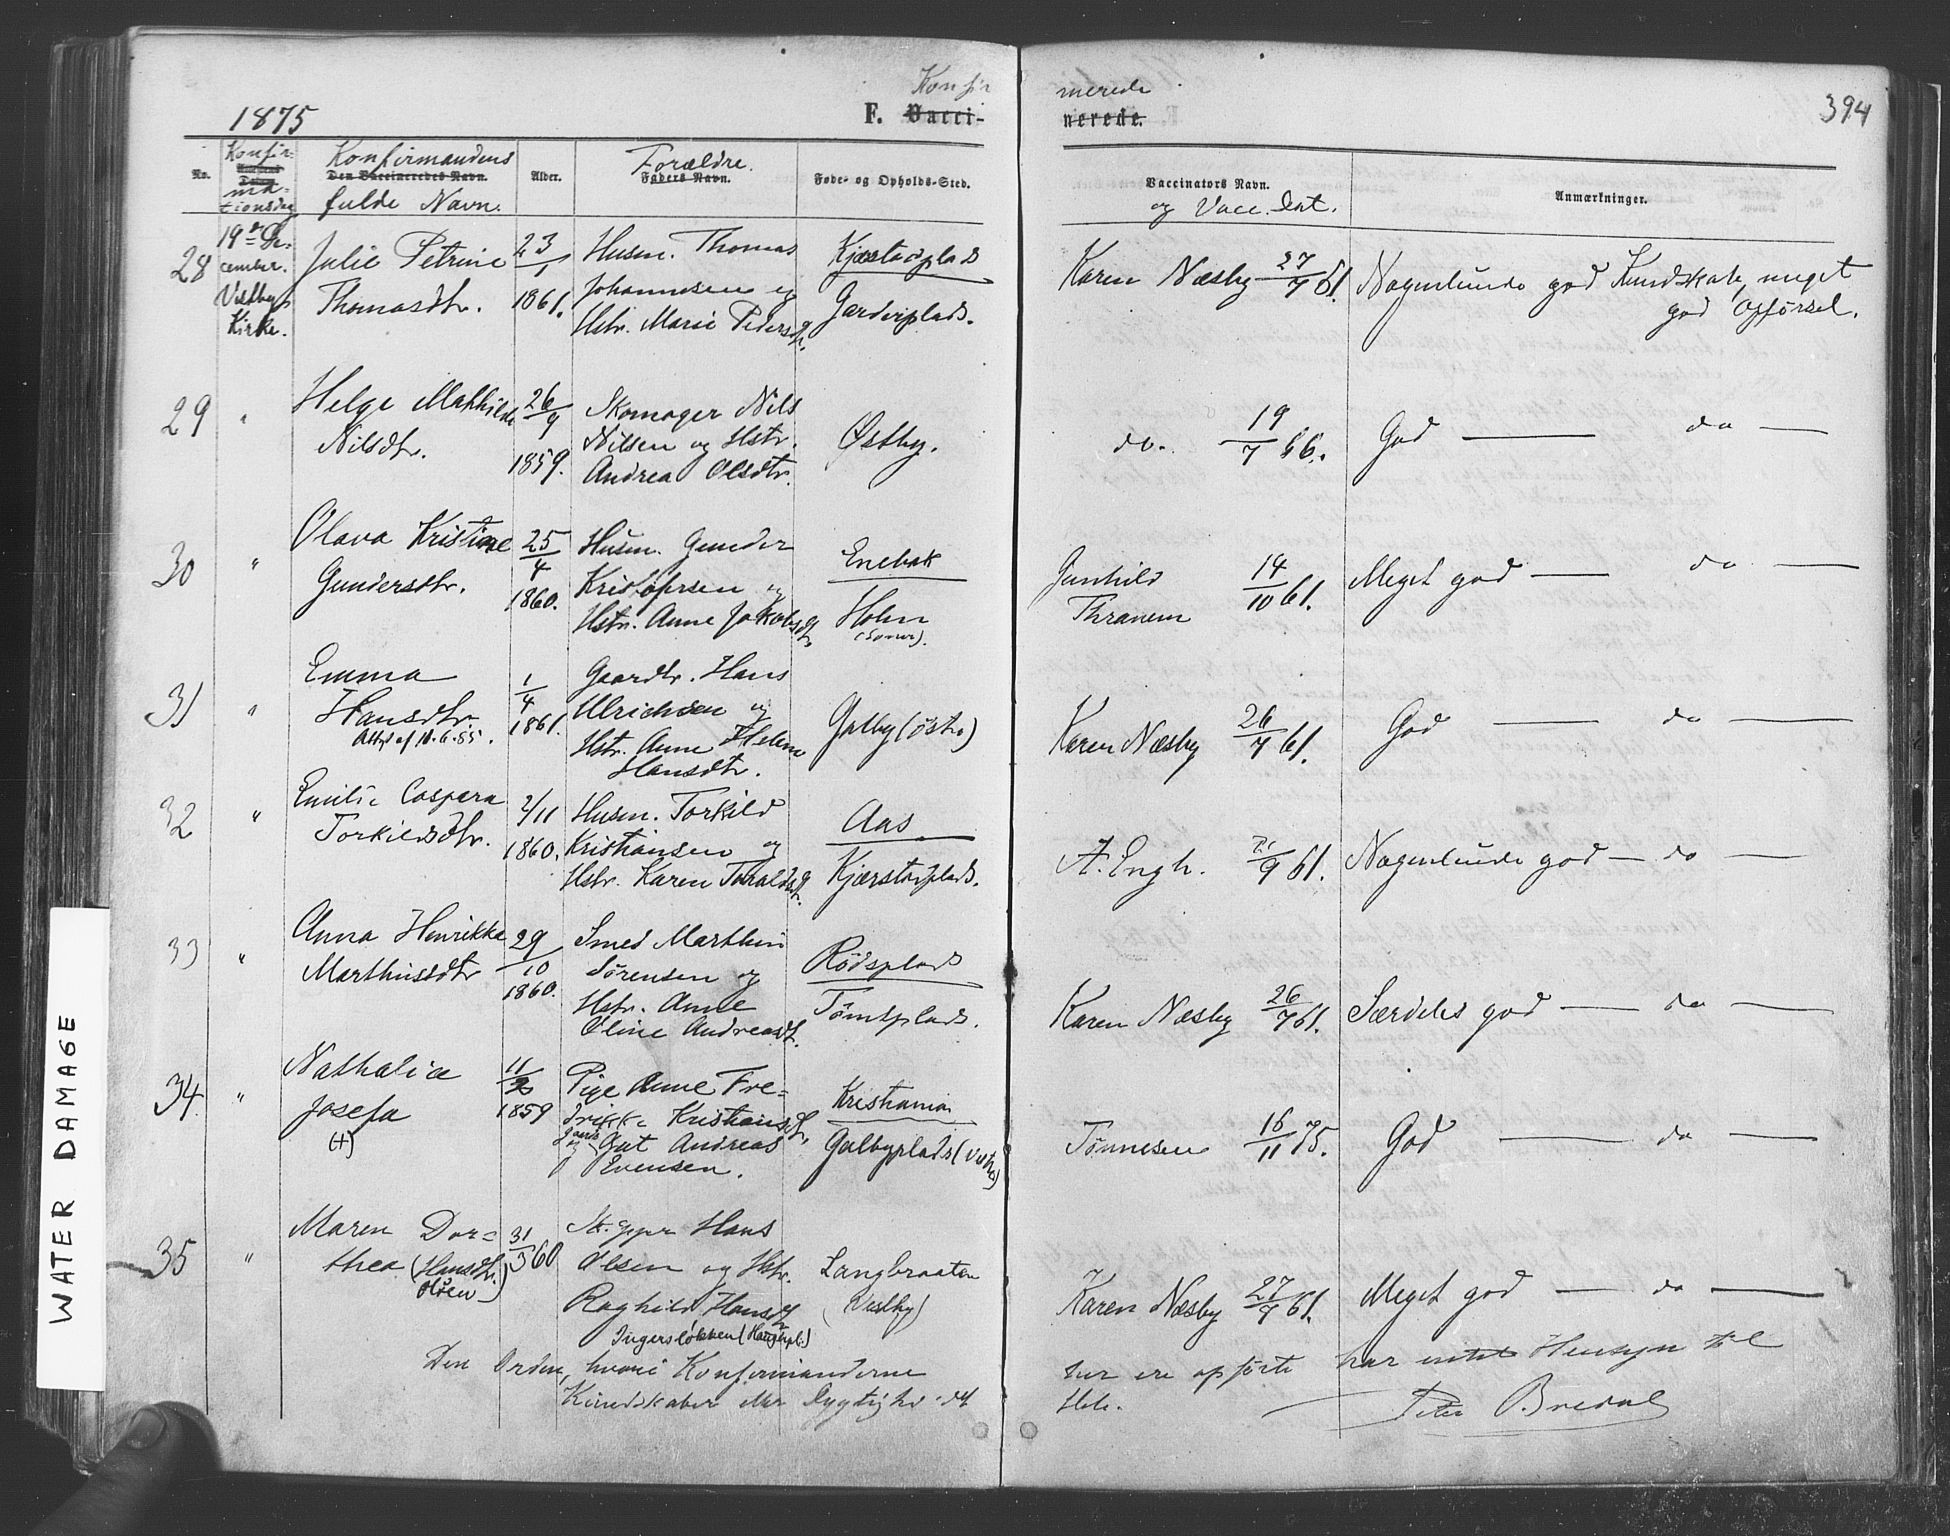 1875
Konfir
F. Vacci-
merede
nerede.
394
No.
Konfir-
ma-
tionsdag
Konfirmandens
Den Vaccineredes Navn.
fulde Navn.
Alder.
Forældre.
Faders Navn.
Føde- og Opholds-Sted.
Vaccinators Navn.
og Vacc. Dat.
Anmærkninger.
28
19de De-
cember.
Vestby
Kirke.
Julie Petrine
Thomasdtr.
23/1
1861.
Husm. Thomas
Johannesen og
Hstr. Marie Pedersdtr.
Kjærstadplads
Garderplads.
Karen Næsby 27/7 61.
Nogenlunde god Kundskab, meget
god Opførsel.
29
"
Helge Mathilde
Nilsdtr.
26/9
1859.
Skomager Nils
Nilsen og Hstr.
Andrea Olsdtr.
Østby.
do. 19/7 66.
God — do —
30
"
Olava Kristine
Gundersdtr.
25/4
1860.
Husm. Gunder
Kristofersen og
Hstr. Anne Jakobsdtr.
Enebak
Holm
(Soner).
Gunhild
Thranem
14/10 61.
Meget god — do —
31
"
Emma
Hansdtr.
Attest af 11.6.85.
1/4
1861.
Gaardbr. Hans
Ulrichsen og
Hstr. Anne Helene
Hansdtr.
Galby (østre)
Karen Næsby 26/7 61.
God — do —
32
"
Emilie Caspara
Torkildsdtr.
2/11
1860.
Husm. Torkild
Kristiansen og
Hstr. Karen Toraldsdtr.
Aas
Kjærstadplads.
A. Engh. 21/9 61.
Nogenlunde god — do —
33
"
Anna Henrikka
Marthinsdtr
29/10
1860.
Smed Marthin
Sørensen og
Hstr. Anne
Oline Andreasdtr.
Rødsplads
Tømtplads.
Karen Næsby 26/7 61.
Særdeles god — do —
34.
"
Nathalia
Josefa
(+)
11/2
1859
Pige Anne Fre-
drikke Kristiansdtr.
og Gut Andreas
Evensen.
Kristiania
Galbyplads (vestre)
Tønnesen 16/11 75.
God — do —
35
"
Maren Dor-
thea (Hansdtr.)
Olsen
31/3 60
Hans
Olsen og Hstr.
Raghild Hansdtr
Ingersløkken (Haugerpl.)
Langbraaten
(Vestby)
Karen Næsby 27/9 61.
Meget god — do —
Den Orden, hvori Konfirmanderne
her ere opførte har intet Hensyn til
Kundskaber eller Dygtighed i det
Hele.
Peter Bredal
WATER DAMAGE